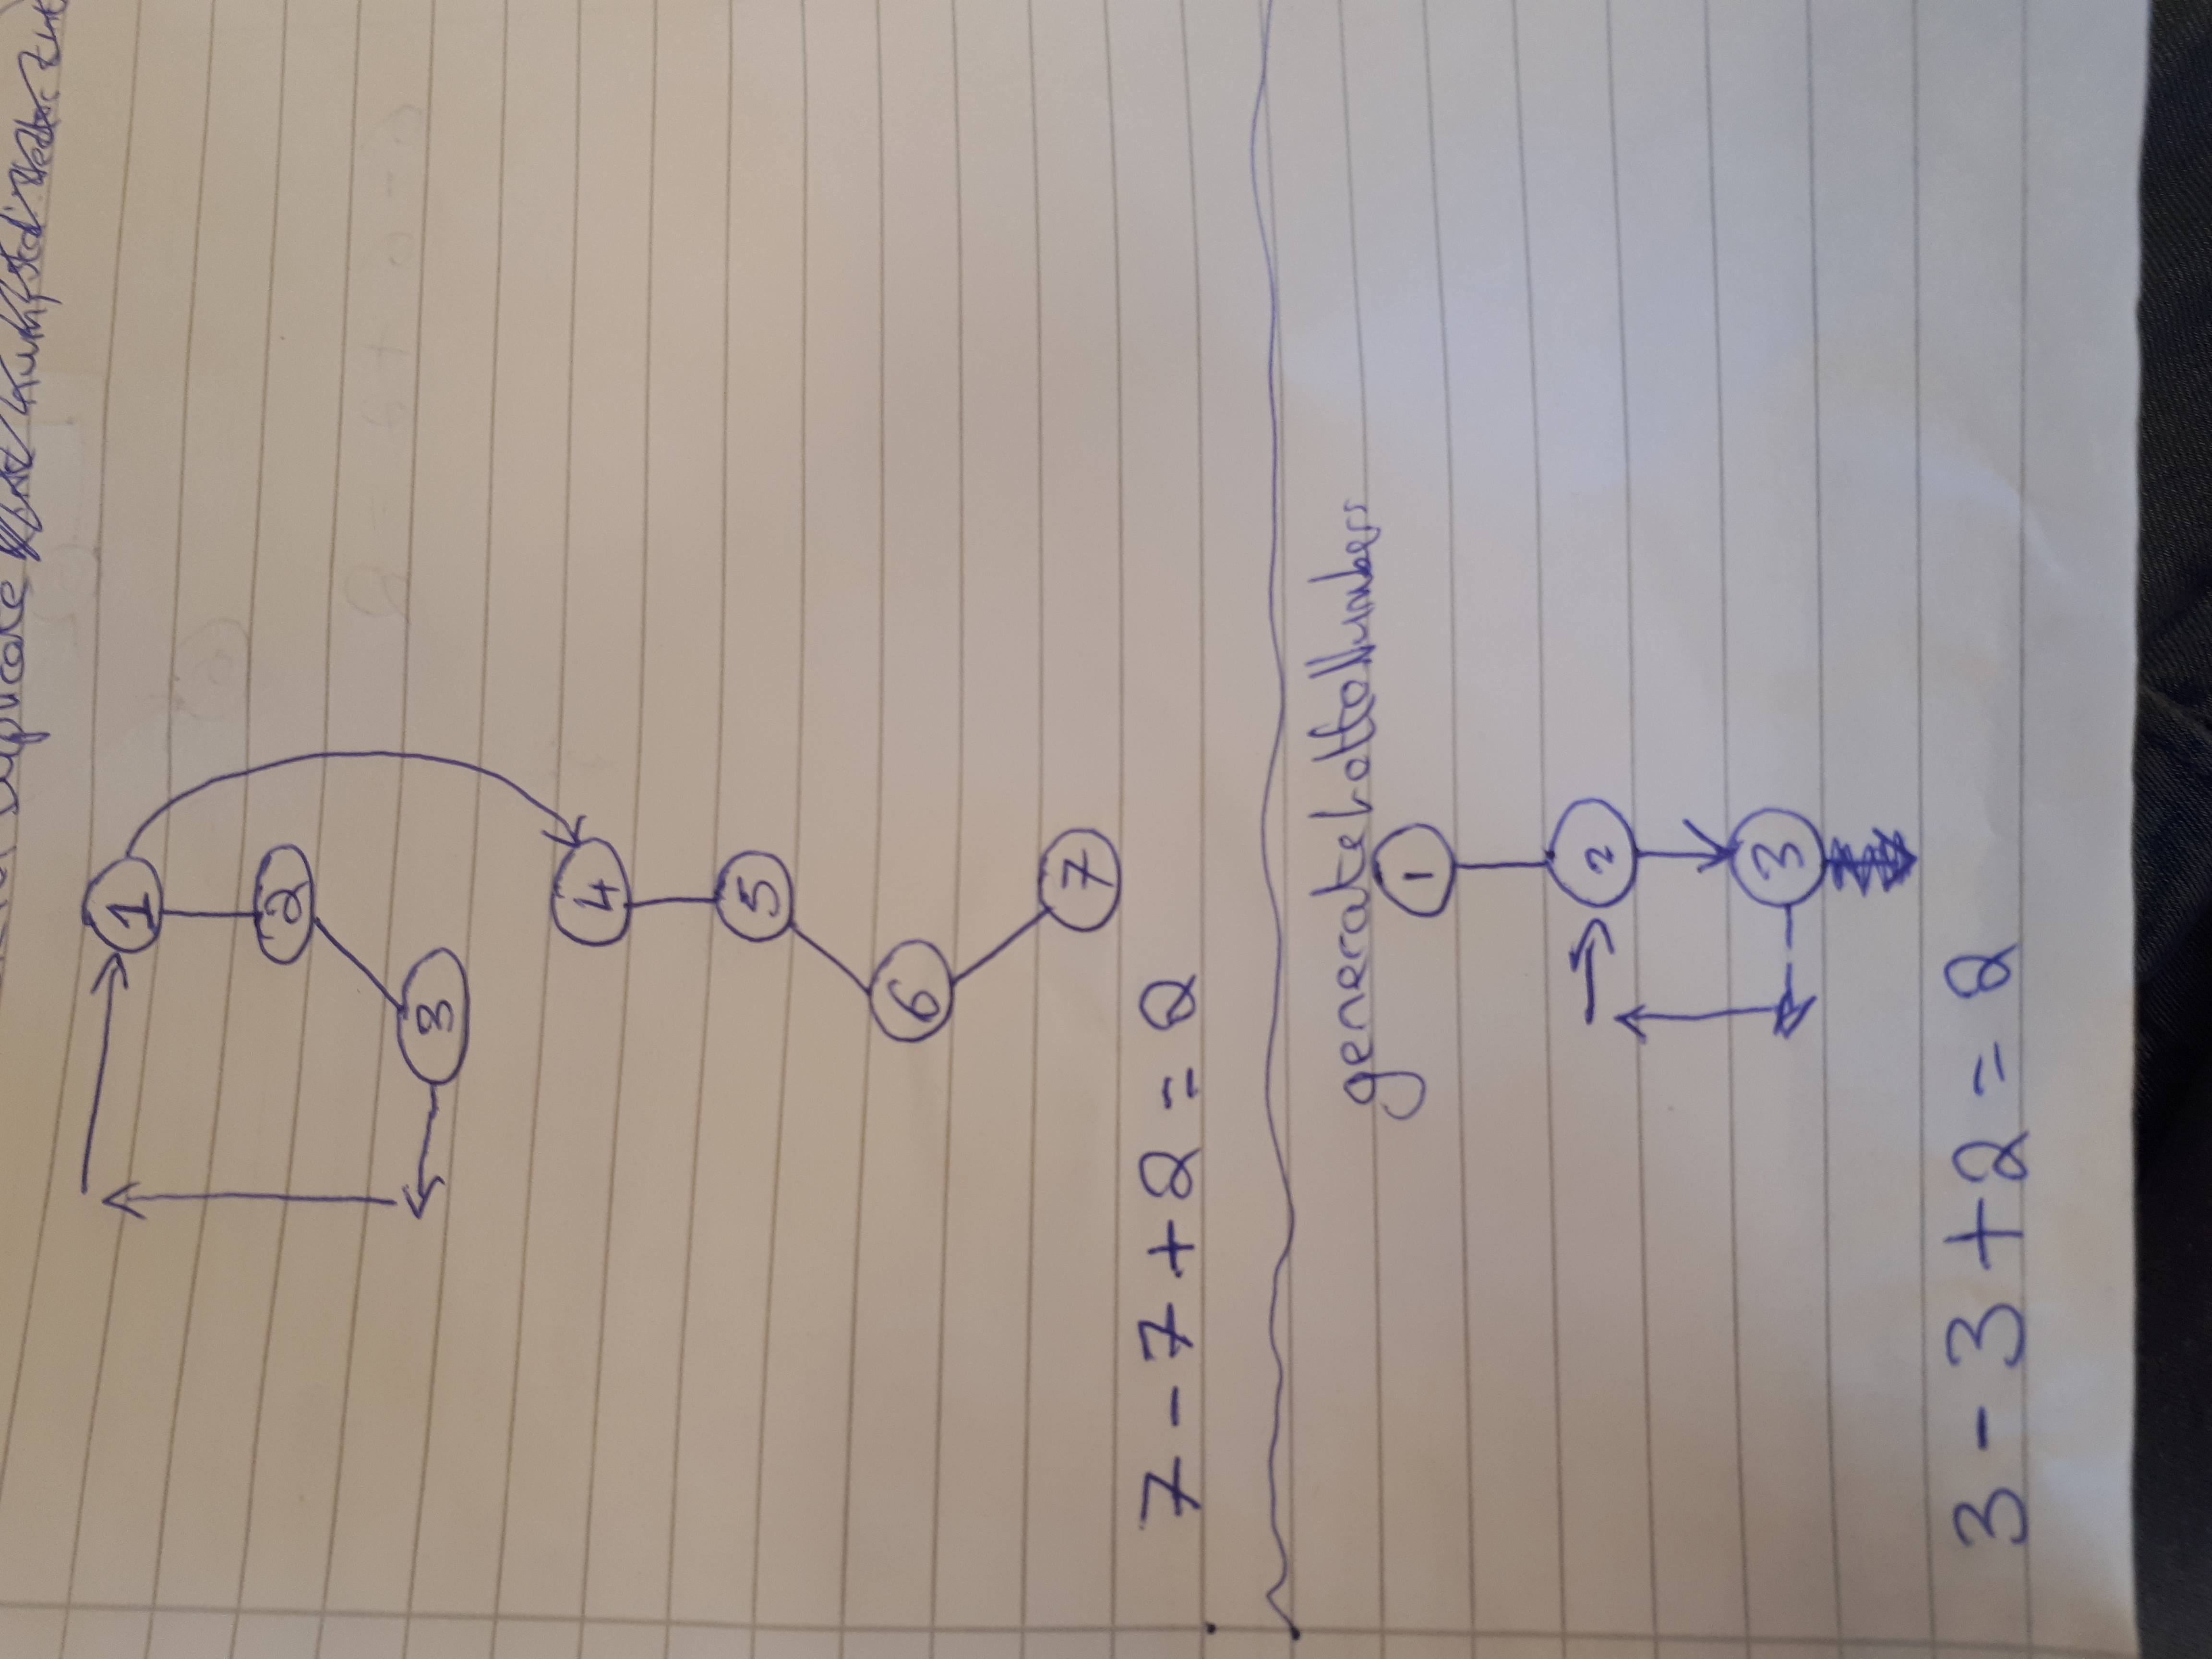 Duplicate
1
2
3
4
5
6
7
7 - 7 + 2 = 2
generateLottoNumbers
1
2
3
3 - 3 + 2 = 2